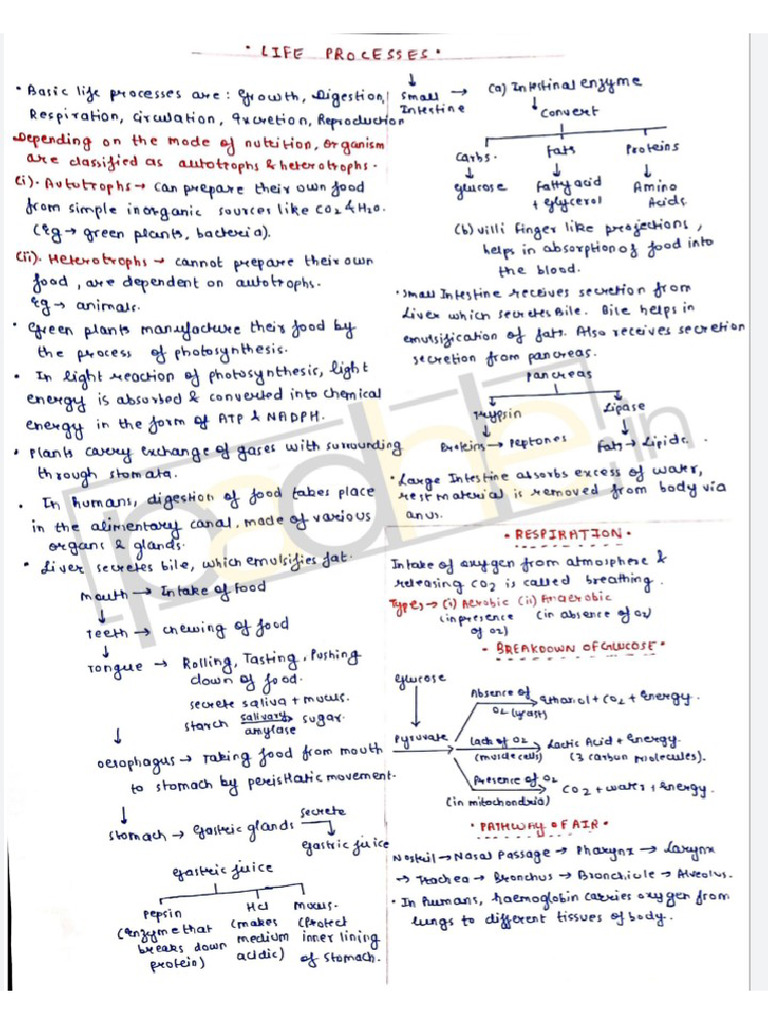 • LIFE PROCESSES •
• Basic life processes are: Growth, Digestion,
Respiration, Circulation, Excretion, Reproduction
Depending on the mode of nutrition, organism
are classified as autotrophs & heterotrophs.
(i). Aututrophs → can prepare their own food
from simple inorganic sources like CO2 & H2O.
(Eg → green plants, bacteria).
(ii). Heterotrophs → cannot prepare their own
food, are dependent on autotrophs.
Eg → animals.
• Green plants manufacture their food by
the process of photosynthesis.
• In light reaction of photosynthesis, light
energy is absorbed & converted into chemical
energy in the form of ATP & NADPH.
• Plants carry exchange of gases with surrounding
through stomata.
• In humans, digestion of food takes place
in the alimentary canal, made of various
organs & glands.
• Liver secretes bile, which emulsifies fat.
Mouth → Intake of food
↓
Teeth → chewing of food
↓
Tongue → Rolling, Tasting, Pushing
down of food.
secrete saliva + mucus.
starch salivary amylase → sugar.
↓
Oesophagus → Taking food from mouth
to stomach by peristaltic movement.
↓
Stomach → Gastric glands secrete → Gastric juice
Gastric juice
Pepsin HCl Mucus.
(enzyme that (makes (protect
breaks down medium inner lining
protein) acidic) of stomach.
↓
Small Intestine → (a) Intestinal enzyme
↓ Convert
Carbs. Fats Proteins
↓ ↓ ↓
Glucose Fatty acid + Glycerol Amino Acids.
(b) villi finger like projections,
helps in absorption of food into
the blood.
• Small Intestine receives secretion from
Liver which secretes Bile. Bile helps in
emulsification of fats. Also receives secretion
secretion from pancreas.
Pancreas
Trypsin Lipase
Proteins → Peptones Fats → Lipids.
• Large Intestine absorbs excess of water,
rest material is removed from body via
anus.
• RESPIRATION •
Intake of oxygen from atmosphere &
releasing CO2 is called breathing.
Types → (i) Aerobic (ii) Anaerobic
(in presence of O2) (in absence of O2)
- BREAKDOWN OF GLUCOSE •
Glucose
↓
Pyruvate
Absence of O2 (yeast) → Ethanol + CO2 + Energy.
Lack of O2 (muscle cells) → Lactic Acid + Energy.
(3 carbon molecules).
Presence of O2 (in mitochondria) → CO2 + water + Energy.
• PATHWAY OF AIR •
Nostril → Nasal Passage → Pharynx → Larynx
→ Trachea → Bronchus → Bronchiole → Alveolus.
• In humans, haemoglobin carries oxygen from
lungs to different tissues of body.
padhle.in